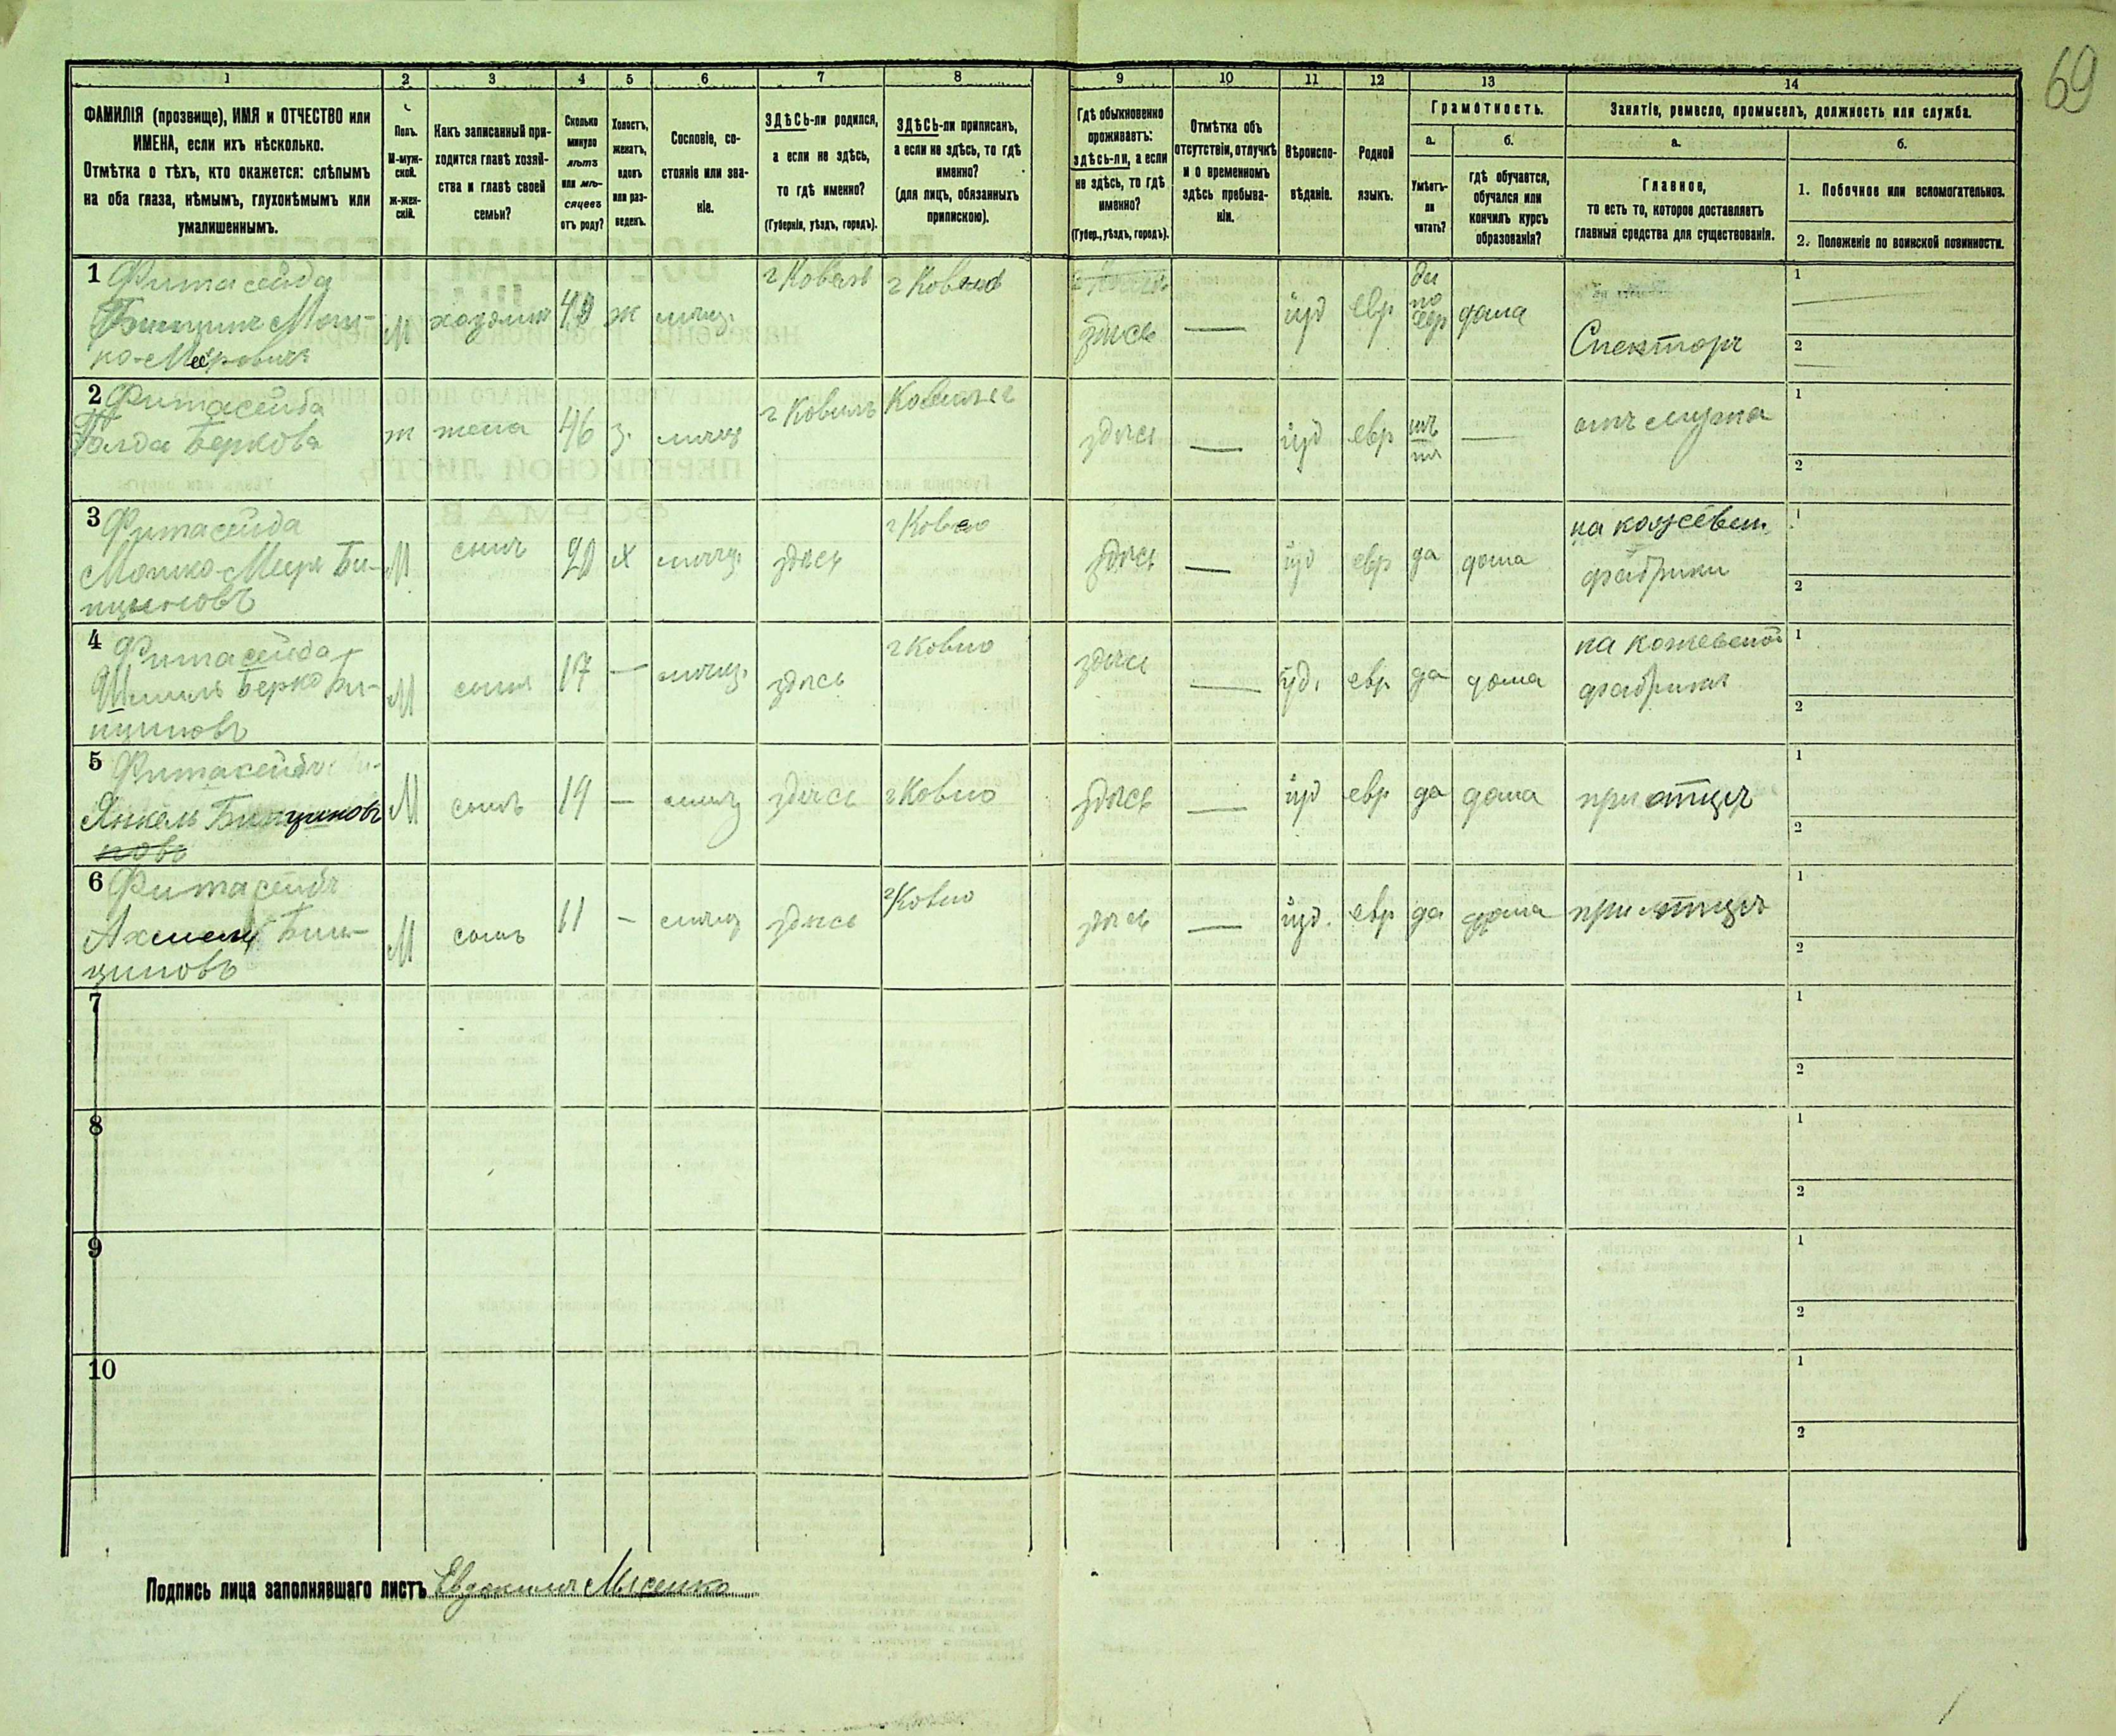 69
1 2 3 4 5 6 7 8 9 10 11 12 13 14
ФАМИЛІЯ (прозвище), ИМЯ и ОТЧЕСТВО или
ИМЕНА, если ихъ нѣсколько.
Отмѣтка о тѣхъ, кто окажется: слѣпымъ
на оба глаза, нѣмымъ, глухонѣмымъ или
умалишеннымъ.
Полъ.
М-муж-
ской.
ж-жен-
скій.
Какъ записанный при-
ходится главѣ хозяй-
ства и главѣ своей
семьи?
Сколько
минуло
лѣтъ
или мѣ-
сяцевъ
отъ роду?
Холостъ,
женатъ,
вдовъ
или раз-
веденъ.
Сословіе, со-
стояніе или зва-
ніе.
ЗДѢСЬ-ли родился,
а если не здѣсь,
то гдѣ именно?
(Губернія, уѣздъ, городъ).
ЗДѢСЬ-ли приписанъ,
а если не здѣсь, то гдѣ
именно?
(для лицъ, обязанныхъ
припискою).
Гдѣ обыкновенно
проживаетъ:
здѣсь-ли, а если
не здѣсь, то гдѣ
именно?
(Губер., уѣздъ, городъ).
Отмѣтка объ
отсутствіи, отлучкѣ
и о временномъ
здѣсь пребыва-
ніи.
Вѣроиспо-
вѣданіе.
Родной
языкъ.
Грамотность.
а.
Умѣетъ-
ли
читать?
б.
гдѣ обучается,
обучался или
кончилъ курсъ
образованія?
Занятіе, ремесло, промыселъ, должность или служба.
а.
Главное,
то есть то, которое доставляетъ
главныя средства для существованія.
б.
1. Побочное или вспомогательное.
2. Положеніе по воинской повинности.
1 Фитасейда
Мош-
ко-Мееровичъ
М хозяинъ 49 ж мѣщ. г Ковель г Ковно здѣсь — іуд евр
да
по
евр
дома
Спекторъ
1
2
2 Фитасейда
Голда Беркова
ж жена 46 з. мѣщ г Ковель здѣсь — іуд евр — отъ мужа
1
2
3 Фитасейда
Мошко-Меер Би-
нциновъ
М сынъ 20 х мѣщ. здѣсь г Ковно здѣсь — іуд евр да дома
на кожевен.
фабрики
1
2
4 Фитасейда
Шмиль Берко Би-
нциновъ
М сынъ 17 — мѣщ. здѣсь г Ковно здѣсь — іуд. евр да дома
на кожевеной
фабрики
1
2
5 Фитасейда
Янкель Бинциновъ
новъ
М сынъ 14 — мѣщ здѣсь г Ковно здѣсь — іуд евр да дома при отцѣ
1
2
6 Фитасейда
Бин-
циновъ
М сынъ 11 — мѣщ здѣсь г Ковно здѣсь — іуд. евр да дома при отцѣ
1
2
7
1
2
8
1
2
9
1
2
10
1
2
Подпись лица заполнявшаго листъ Евдокимъ